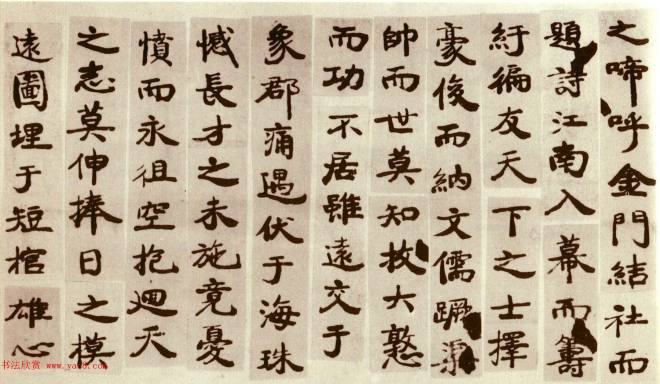 之啼呼金門結社而
題詩江南入幕而籌
紆徧友天下之士擇
豪俊而納文儒蹶
帥而世莫知拔大憝
而功不居雖遠交于
象郡痛遇伏于海珠
憾長才之未施竟憂
憤而永徂空抱迴天
之志莫伸捧日之模
遠圖埋于短棺雄心
书法欣赏 www.yac8.com